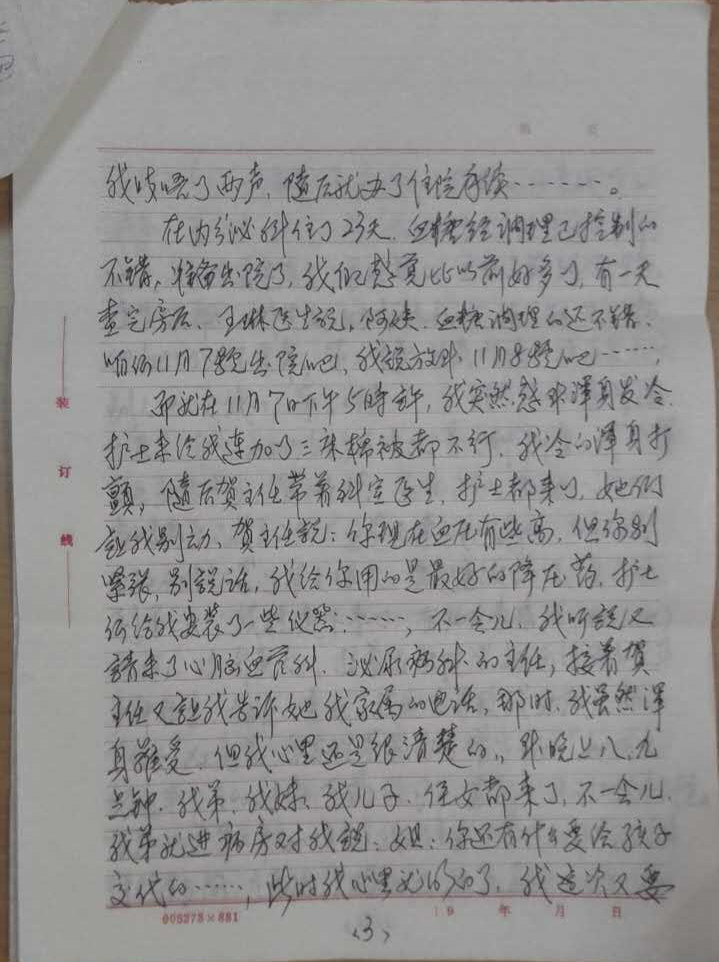 第 页
我吱唔了两声，随后就办了住院手续……。
在内分泌科住了23天，血糖经调理已控制的
不错，准备出院了，我的感觉比以前好多了，有一天
查完房后，王琳医生说，阿姨，血糖调理的还不错，
咱们11月7号出院吧，我说放到11月8号吧……，
那就在11月7日下午5时许，我突然感到浑身发冷，
护士来给我连加了三床棉被都不行，我冷的浑身打
颤，随后贺主任带着科室医生、护士都来了，她们
让我别动，贺主任説：你现在血压有些高，但你别
紧张，别説话，我给你用的是最好的降压药，护士
们给我安装了一些仪器……，不一会儿，我听説又
請来了心脑血管科、泌尿病科的主任，接着贺
主任又让我告诉她我家属的电话，那时，我虽然浑
身难受，但我心里还是很清楚的，到晚上八、九
点钟，我弟、我妹、我儿子、侄女都来了，不一会儿，
我弟就进病房对我説：姐：你还有什么要给孩子
交代的……，此时我心里就明白了，我这次又要
装
订
线
005273×881
19 年 月 日
<3>